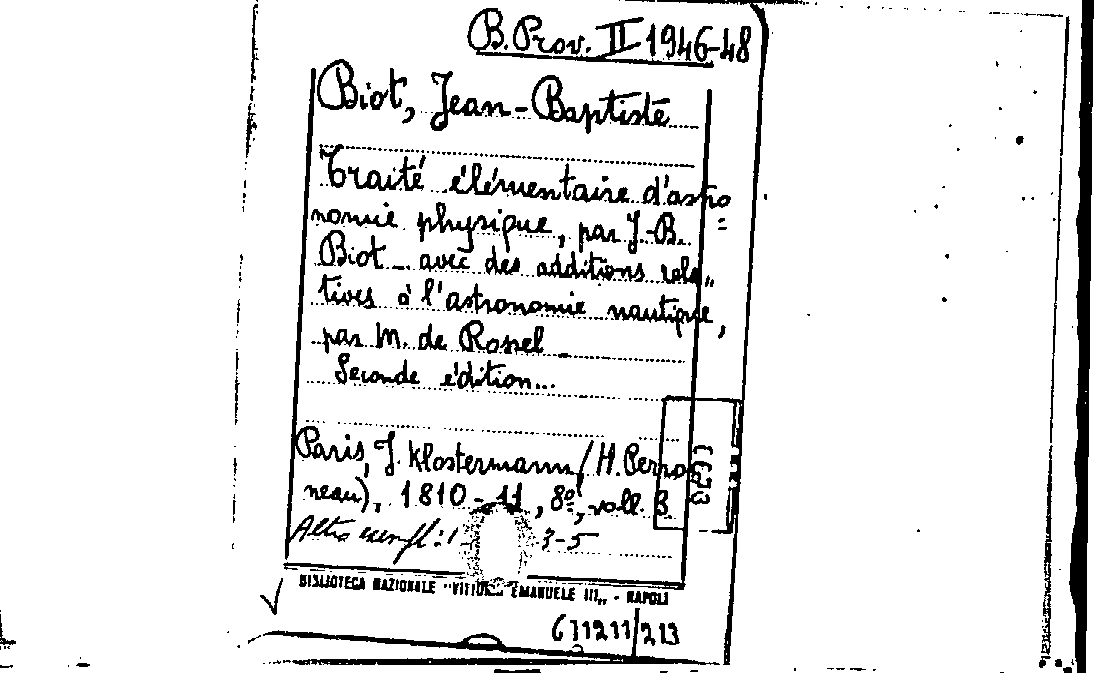 B. Prov. II 1946-48
Biot, Jean-Baptiste
Traité élémentaire d'astro
nomie physique, par J.-B.
Biot_ avec des additions rela„
tives à l'astronomie nautique,
par M. de Rossel_
Seconde édition...
Paris, J. Klostermann (H. Perro
neau), 1810-11, 8º, voll. 3
Altro esempl.: 3-5
BIBLIOTECA NAZIONALE "VITTOR. EMANUELE III„ - NAPOLI
211/213